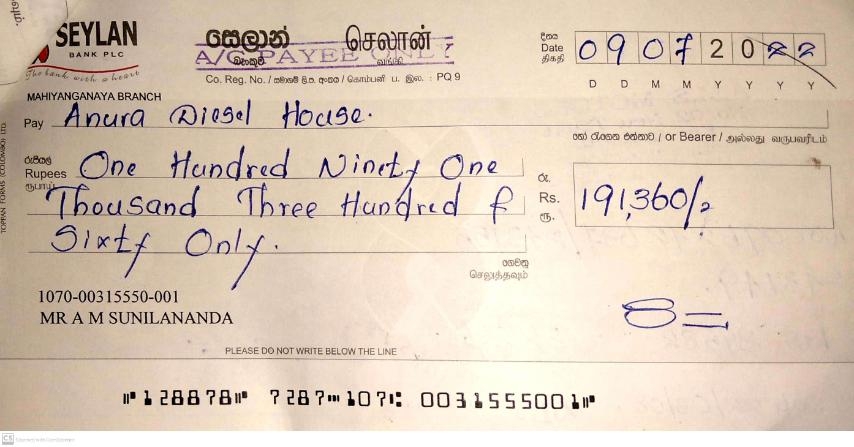 SEYLAN
BANK PLC
The bank with a heart
සෙලාන් செலான்
බැංකුව வங்கி
A/C PAYEE ONLY
Co. Reg. No. / සමාගම් ලි.ප. අංකය / கொம்பனி ப. இல. : PQ 9
දිනය
Date 09 07 2022
திகதி
D D M M Y Y Y Y
MAHIYANGANAYA BRANCH
Pay Anura Diesel House.
හෝ රැගෙන එන්නාට / or Bearer / அல்லது வருபவரிடம்
රුපියල්
Rupees One Hundred Ninety One
ரூபாய் Thousand Three Hundred &
Sixty Only.
රු.
Rs. 191,360/2
ரூ.
ගෙවනු
செலுத்தவும்
1070-00315550-001
MR A M SUNILANANDA
PLEASE DO NOT WRITE BELOW THE LINE
⑈128878⑈ 7287⑉107⑆ 0031555001⑈
TOPPAN FORMS (COLOMBO) LTD.
CS Scanned with CamScanner